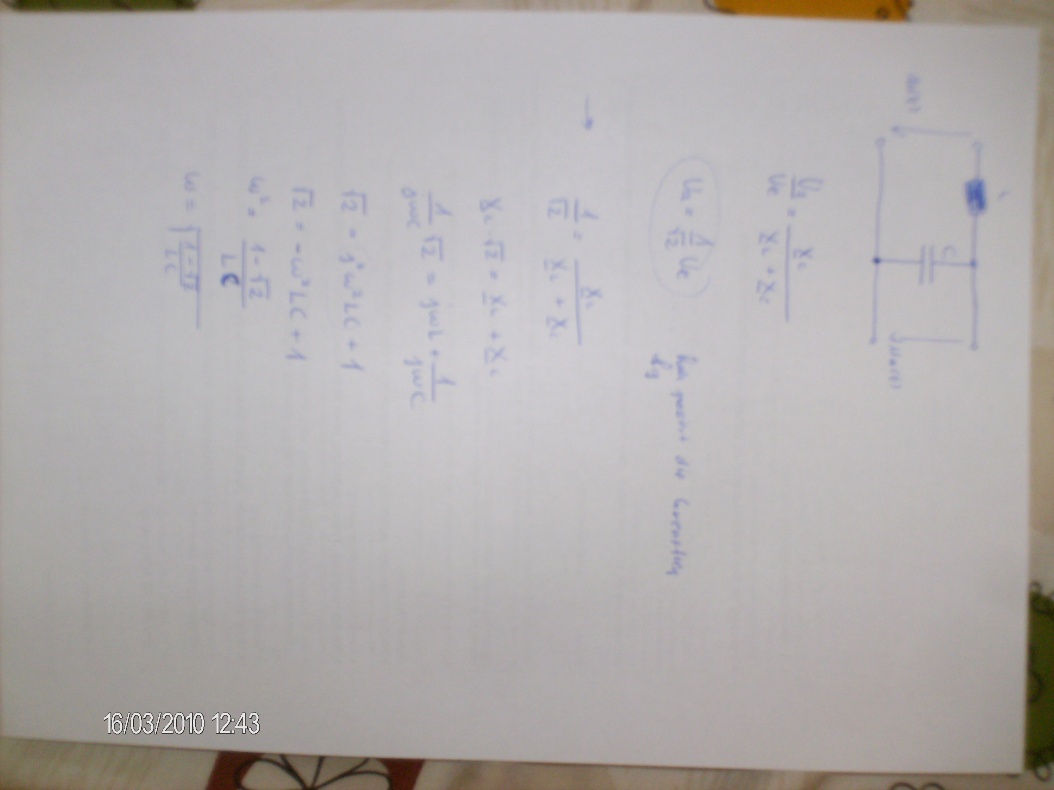 C
U₂/Uₑ = X_C / (X_L + X_C)
U₂ = 1/√2 Uₑ
1/√2 = X_C / (X_L + X_C)
X_C · √2 = X_L + X_C
1/jωC √2 = jωL + 1/jωC
√2 = j²ω²LC + 1
√2 = -ω²LC + 1
ω² = 1-√2 / LC
ω = √(1-√2 / LC)
16/03/2010 12:43